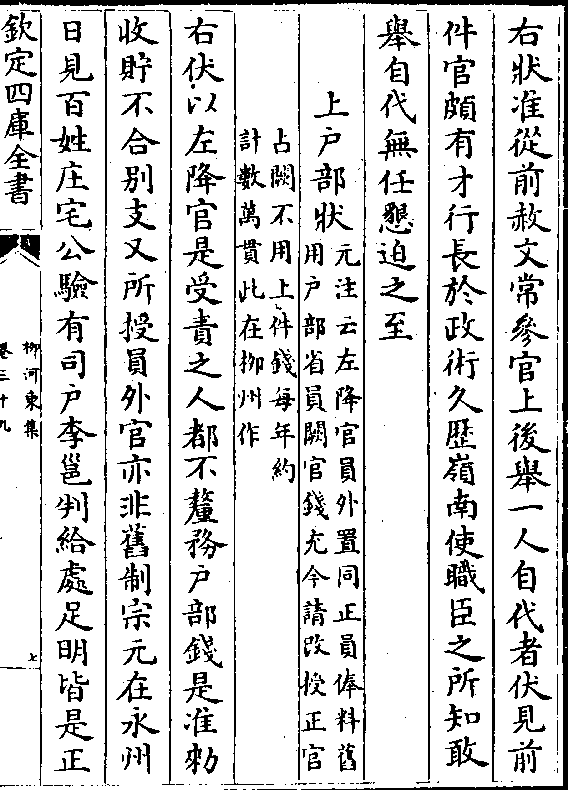 右狀准從前赦文常參官上後舉一人自代者伏見前
件官頗有才行長於政術久歷嶺南使職臣之所知敢
舉自代無任懇迫之至
上戶部狀
元注云左降官員外置同正員俸料舊
用戶部省員闕官錢充今請改授正官
占闕不用上件錢每年約
計數萬貫此在柳州作
右伏以左降官是受責之人都不釐務戶部錢是准勑
收貯不合別支又所授員外官亦非舊制宗元在永州
日見百姓庄宅公驗有司戶李邕判給處足明皆是正
欽定四庫全書
柳河東集
卷三十九
七